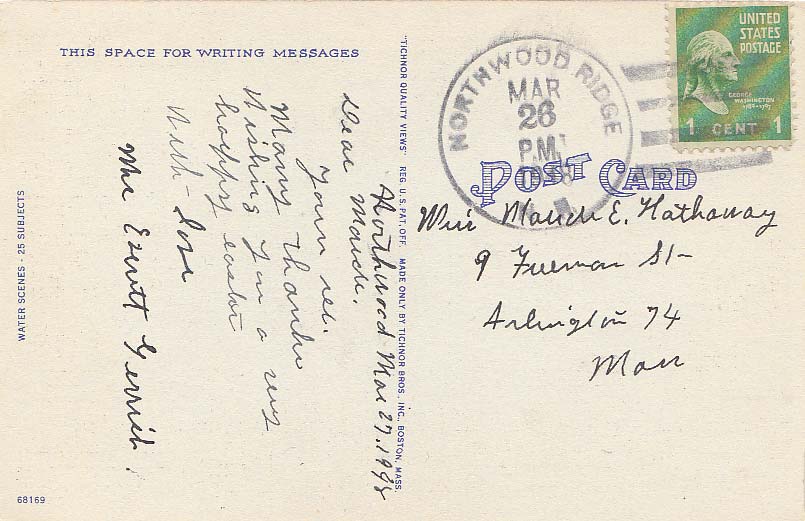 THIS SPACE FOR WRITING MESSAGES
Northwood Mar 27, 1948
Dear Maude.
Yours rec.
Many thanks
Wishing you a very
happy easter
With- Love
Mrs Everett Gerrish.
WATER SCENES - 25 SUBJECTS
68169
"TICHNOR QUALITY VIEWS" REG. U. S. PAT. OFF. MADE ONLY BY TICHNOR BROS., INC., BOSTON, MASS.
NORTHWOOD RIDGE
MAR
26
P.M.
N. H.
UNITED
STATES
POSTAGE
GEORGE
WASHINGTON
1789-1797
1 CENT 1
POST CARD
Miss Maude E. Hathaway
9 Freeman St-
Arlington 74
Mass